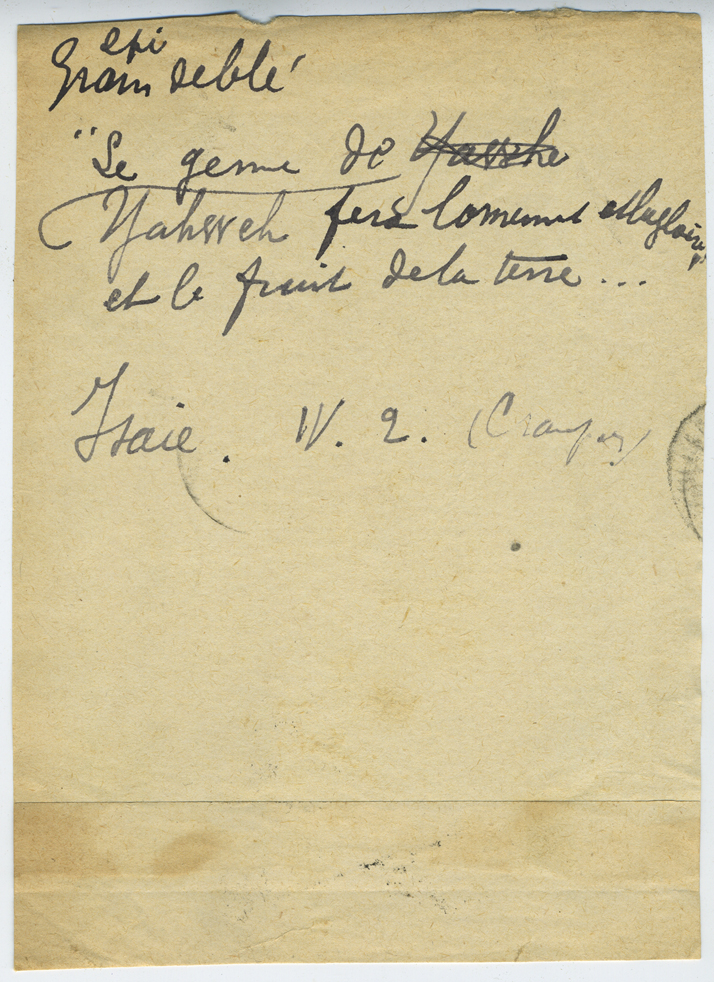 epi
Grain de blé
"Le germe de Yasvhe
Yahweh fera l'ornement et la gloire"
et le fruit de la terre...
Isaie. IV. 2. (Crampon)